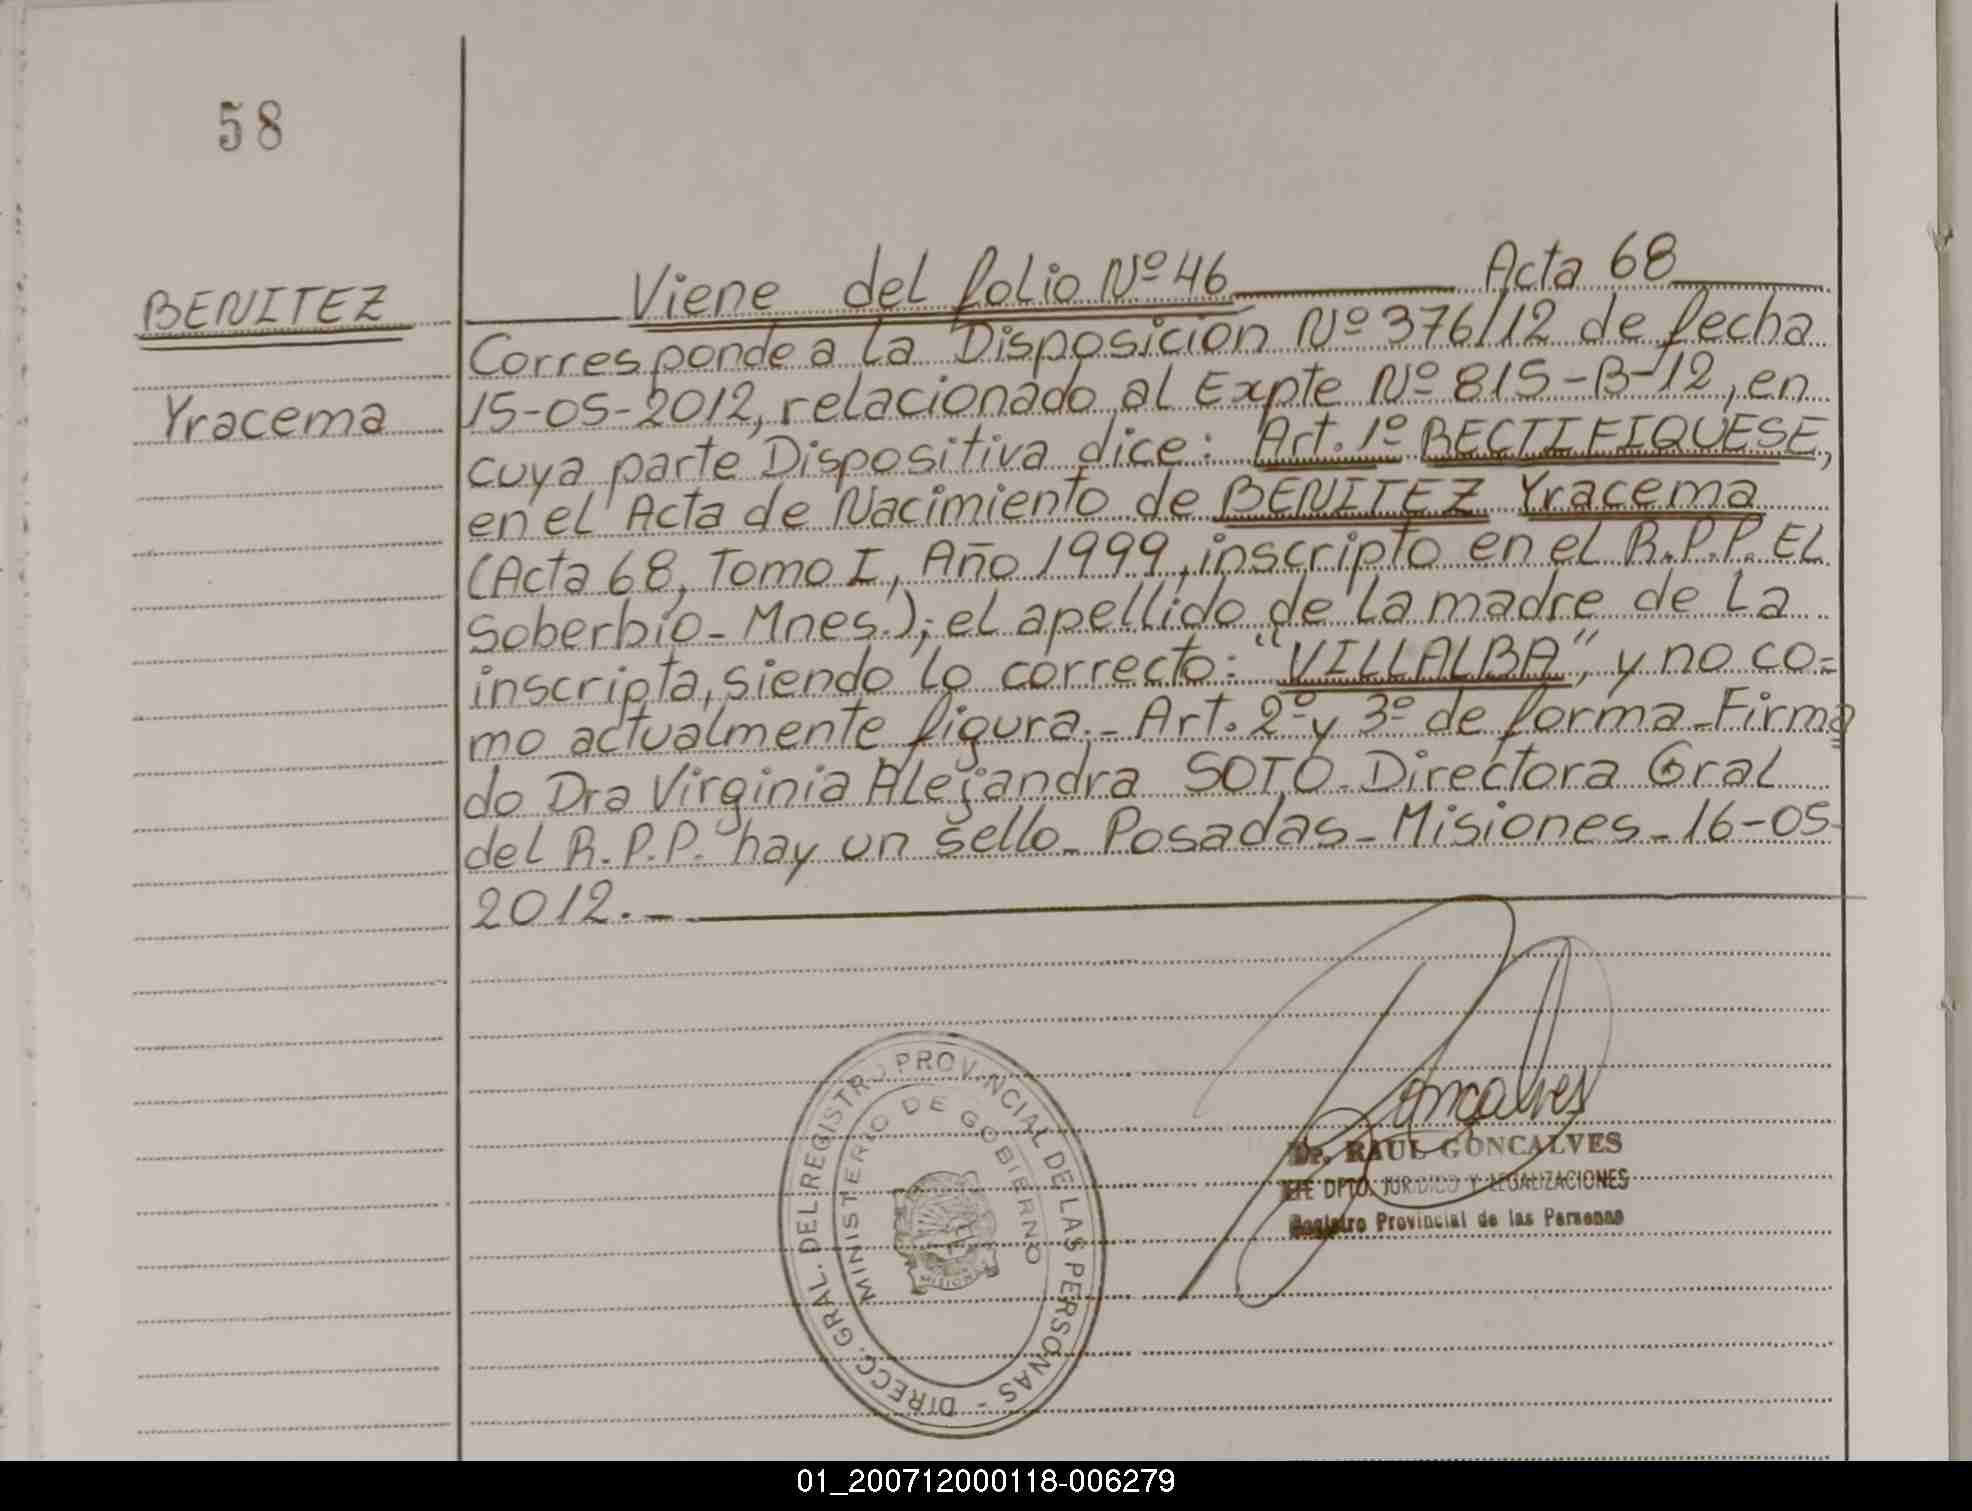 58
BENITEZ
Yracema
Viene del folio Nº 46 Acta 68
Corresponde a la Disposición Nº 376/12 de fecha
15-05-2012, relacionado al Expte Nº 815-B-12, en
cuya parte Dispositiva dice: Art. 1º RECTIFIQUESE,
en el Acta de Nacimiento de BENITEZ Yracema
(Acta 68, Tomo I, Año 1999, inscripto en el R.P.P. EL
Soberbio- Mnes.); el apellido de la madre de la
inscripta, siendo lo correcto: "VILLALBA", y no co=
mo actualmente figura.- Art. 2º y 3º de forma-Firma
do Dra Virginia Alejandra SOTO- Directora Gral
del R.P.P. hay un sello- Posadas- Misiones- 16-05-
2012.-
DIRECC. GRAL. DEL REGISTRO PROVINCIAL DE LAS PERSONAS -
MINISTERIO DE GOBIERNO
MISIONES
Goncalves
Dr. RAUL GONCALVES
JEFE DPTO. JURIDICO Y LEGALIZACIONES
Registro Provincial de las Personas
01_200712000118-006279